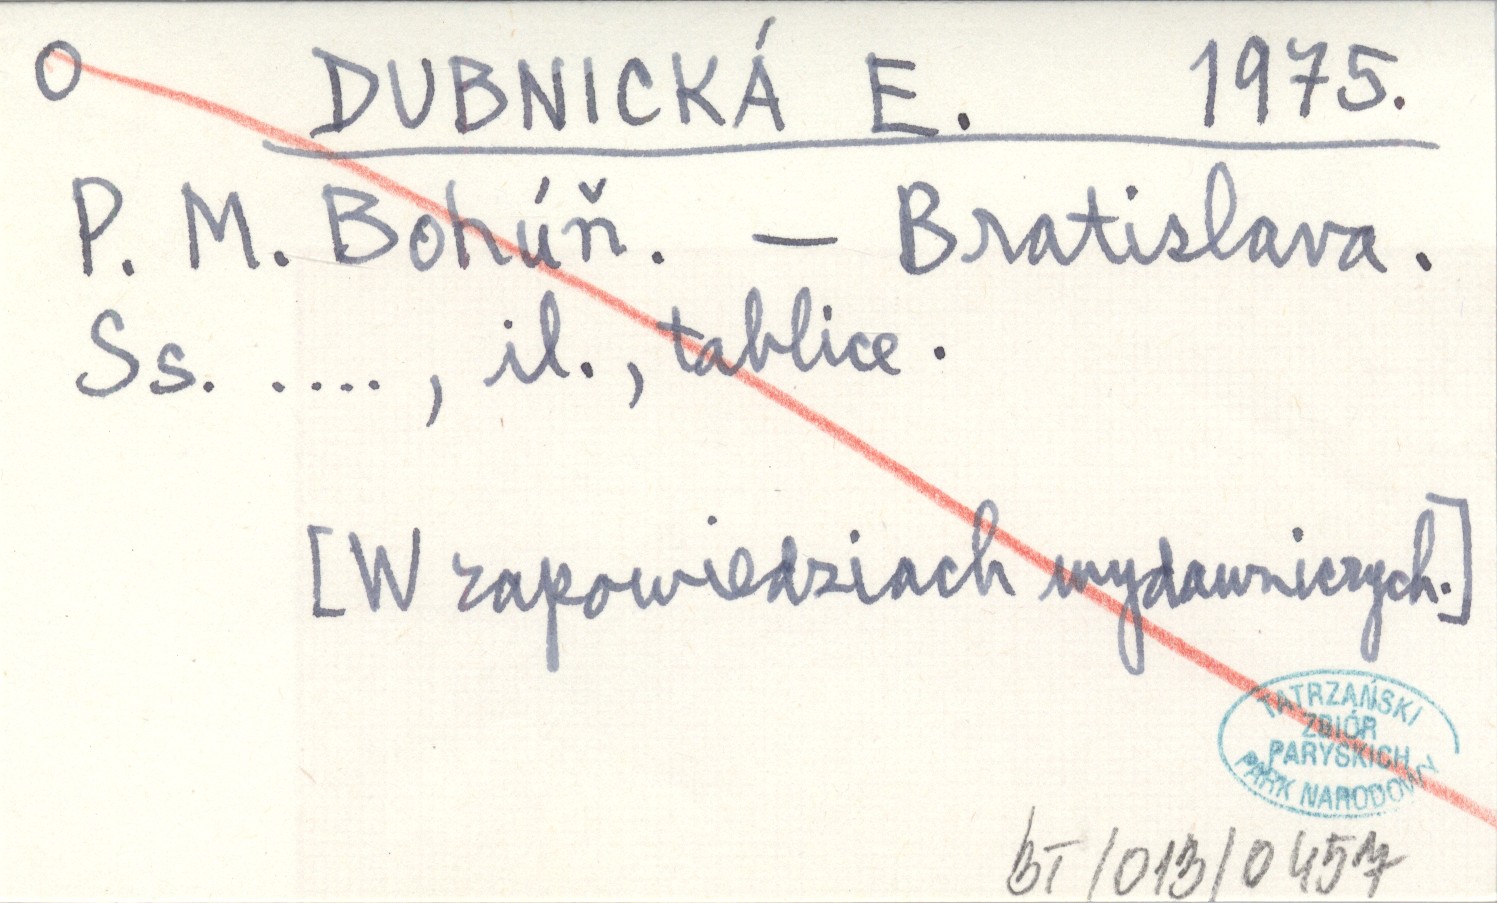 O DUBNICKÁ E. 1975.
P. M. Bohúň. — Bratislava.
Ss. ...., il., tablice.
[W zapowiedziach wydawniczych.]
TATRZAŃSKI
ZBIÓR
PARYSKICH
PARK NARODOWY
BT/013/0457